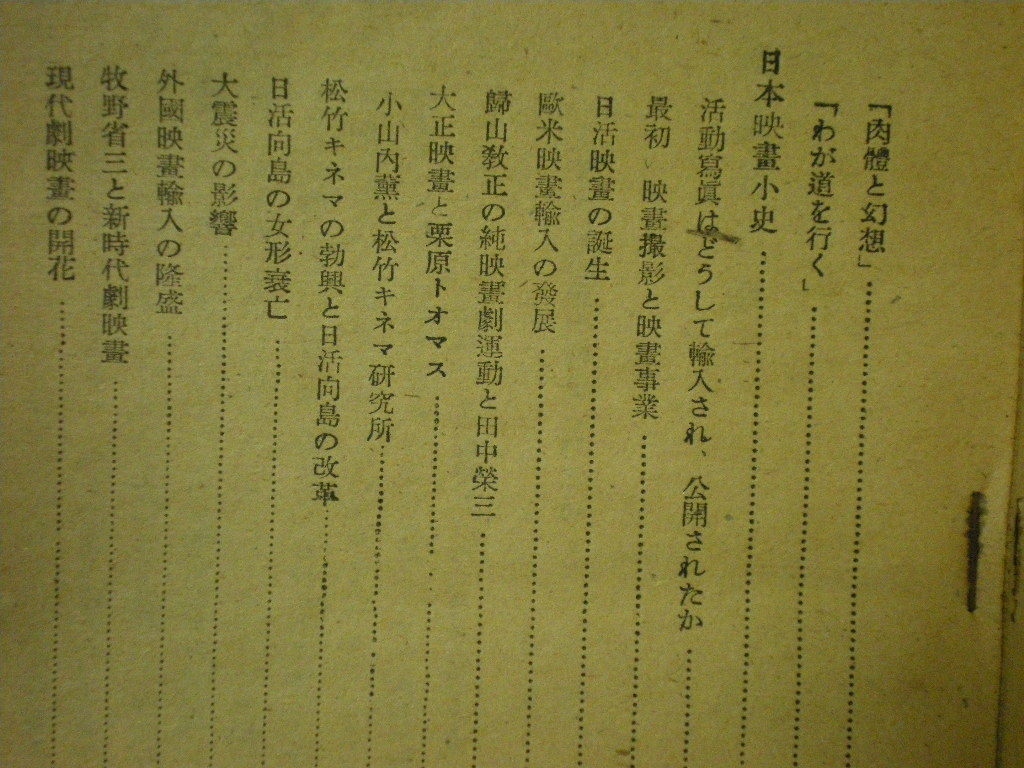 「肉體と幻想」
「わが道を行く」
日本映畫小史
活動寫眞はどうして輸入され、公開されたか
最初 映畫撮影と映畫事業
日活映畫の誕生
歐米映畫輸入の發展
歸山敎正の純映畫劇運動と田中榮三
大正映畫と栗原トオマス
小山內薰と松竹キネマ硏究所
松竹キネマの勃興と日活向島の改革
日活向島の女形衰亡
大震災の影響
外國映畫輸入の隆盛
牧野省三と新時代劇映畫
現代劇映畫の開花